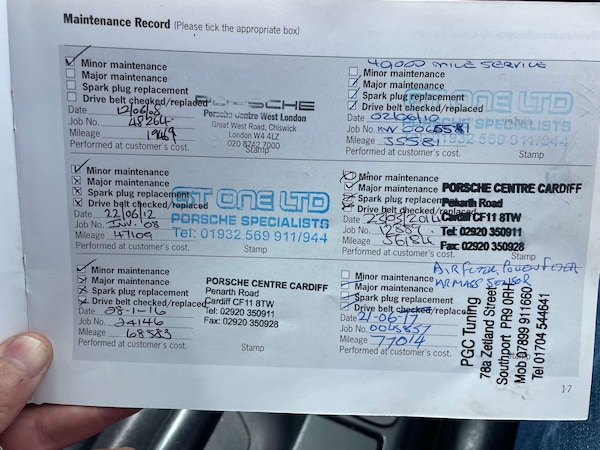 Maintenance Record (Please tick the appropriate box)
Minor maintenance
Major maintenance
Spark plug replacement
Drive belt checked/replaced
Date 12/06/8
Job No. 48264
Mileage 19469
Performed at customer's cost.
PORSCHE
Porsche Centre West London
Great West Road, Chiswick
London W4 4LZ
020 8742 7000
Stamp
40000 MILE SERVICE
Minor maintenance
Major maintenance
Spark plug replacement
Drive belt checked/replaced
Date 02/06/10
Job No. INV 0065581
Mileage 35581
Performed at customer's cost.
GT ONE LTD
PORSCHE SPECIALISTS
Tel: 01932 569 911/944
Stamp
Minor maintenance
Major maintenance
Spark plug replacement
Drive belt checked/replaced
Date 22/06/12
Job No. INV. 08
Mileage 47109
Performed at customer's cost.
GT ONE LTD
PORSCHE SPECIALISTS
Tel: 01932 569 911/944
Stamp
Minor maintenance
Major maintenance
Spark plug replacement
Drive belt checked/replaced
Date
Job No.
Mileage 56184
Performed at customer's cost.
PORSCHE CENTRE CARDIFF
Penarth Road
Cardiff CF11 8TW
Tel: 02920 350911
Fax: 02920 350928
Minor maintenance
Major maintenance
Spark plug replacement
Drive belt checked/replaced
Date 08-1-16
Job No. 24146
Mileage 68583
Performed at customer's cost.
PORSCHE CENTRE CARDIFF
Penarth Road
Cardiff CF11 8TW
Tel: 02920 350911
Fax: 02920 350928
Stamp
AIR FILTER, POLLEN FILTER
AIR MASS SENSOR
Minor maintenance
Major maintenance
Spark plug replacement
Drive belt checked/replaced
Date 21-06-17
Job No. 0045857
Mileage 77014
Performed at customer's cost.
Stamp
PGC Tuning
78a Zetland Street
Southport PR9 0RH
Mob 07899 911660
Tel 01704 544641
17